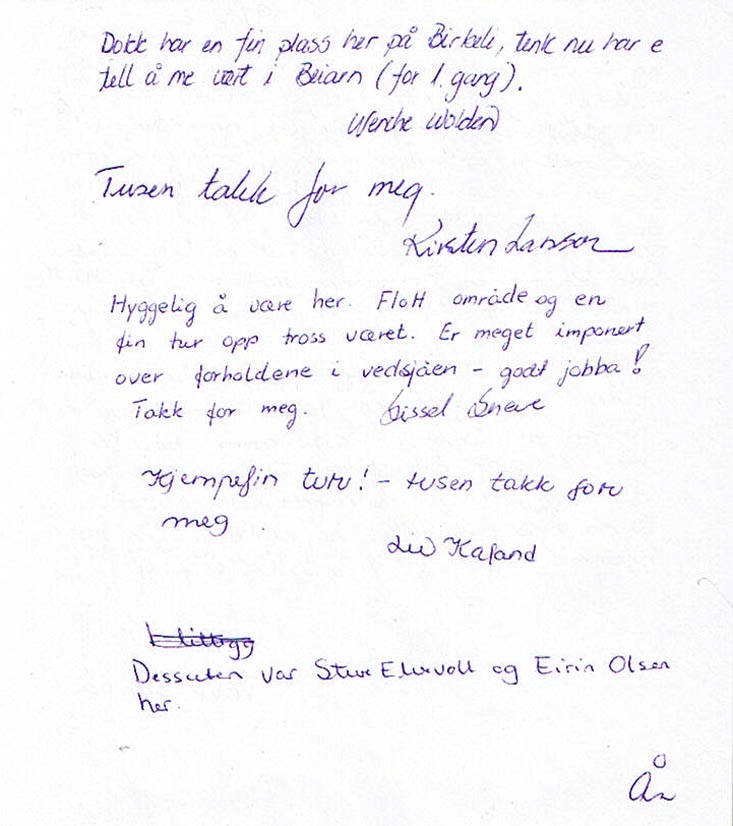 Dokk har en fin plass her på Birkeli, tenk nu har e
tell å me vært i Beiarn (for 1. gang).
Wenche Wolden
Tusen takk for meg.
Kirsten Larsson
Hyggelig å være her. Flott område og en
fin tur opp tross været. Er meget imponert
over forholdene i vedsjåen - godt jobba!
Takk for meg. Sissel
Kjempefin tur! - tusen takk for
meg
Liv Kafand
Dessuten var og Eirin Olsen
her.